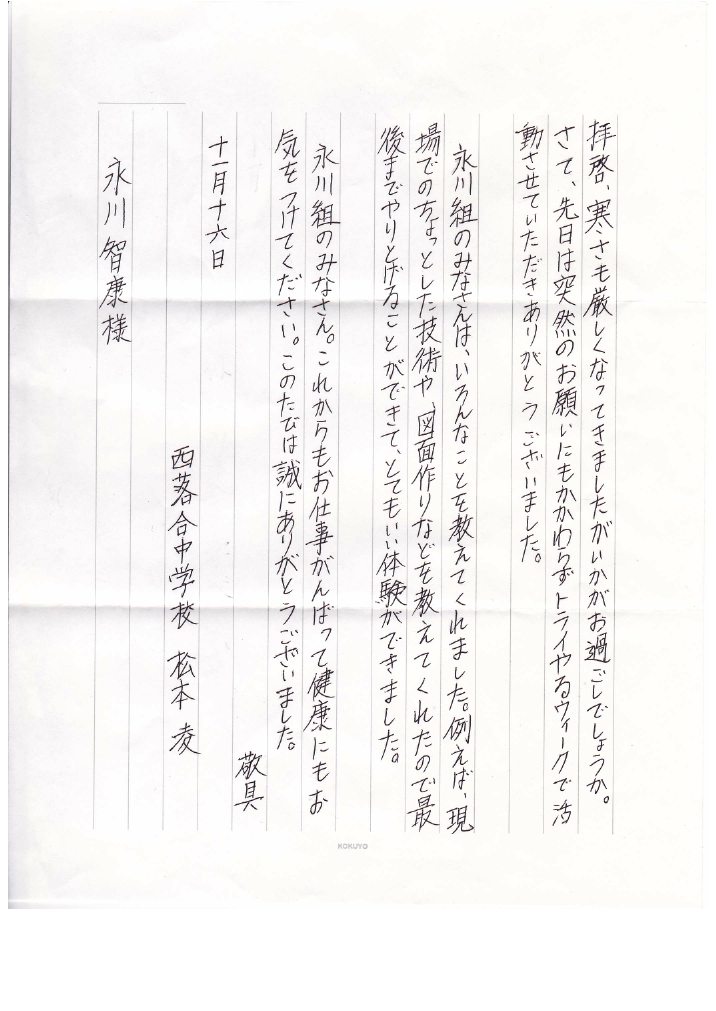 拝啓、寒さも厳しくなってきましたがいかがお過ごしでしょうか。
さて、先日は突然のお願いにもかかわらずトライやるウィークで活
動させていただきありがとうございました。
永川組のみなさんは、いろんなことを教えてくれました。例えば、現
場でのちょっとした技術や、図面作りなどを教えてくれたので最
後までやりとげることができて、とてもいい体験ができました。
永川組のみなさん。これからもお仕事がんばって健康にもお
気をつけてください。このたびは誠にありがとうございました。
敬具
十一月十六日
西落合中学校 松本 凌
永川智康様
KOKUYO